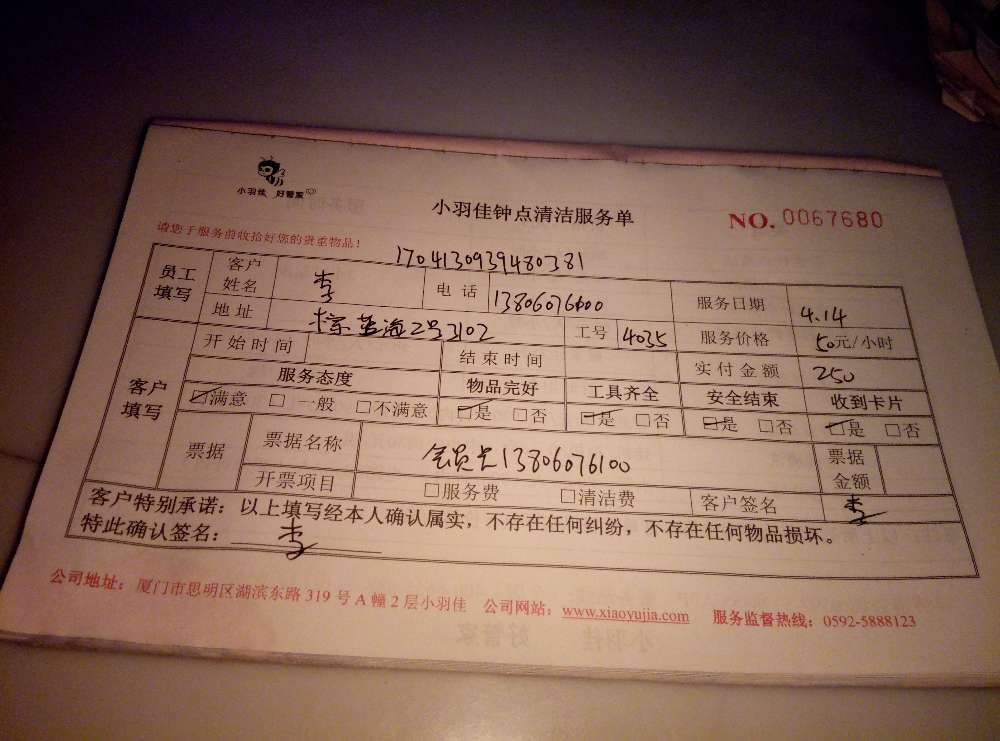 小羽佳 好管家
小羽佳钟点清洁服务单
NO. 0067680
请您于服务前收拾好您的贵重物品！
1704130939480381
员工填写 客户姓名 李 电话 13806076100 服务日期 4.14
地址 蓝海2号3102 工号 4035 服务价格 50元/小时
客户填写 开始时间 结束时间 实付金额 250
服务态度 物品完好 工具齐全 安全结束 收到卡片
☑满意 □一般 □不满意 ☑是 □否 ☑是 □否 ☑是 □否 ☑是 □否
票据 票据名称 会员卡13806076100 票据金额
开票项目 □服务费 □清洁费 客户签名 李
客户特别承诺：以上填写经本人确认属实，不存在任何纠纷，不存在任何物品损坏。
特此确认签名：李
公司地址：厦门市思明区湖滨东路 319 号 A 幢 2 层小羽佳 公司网站：www.xiaoyujia.com 服务监督热线：0592-5888123